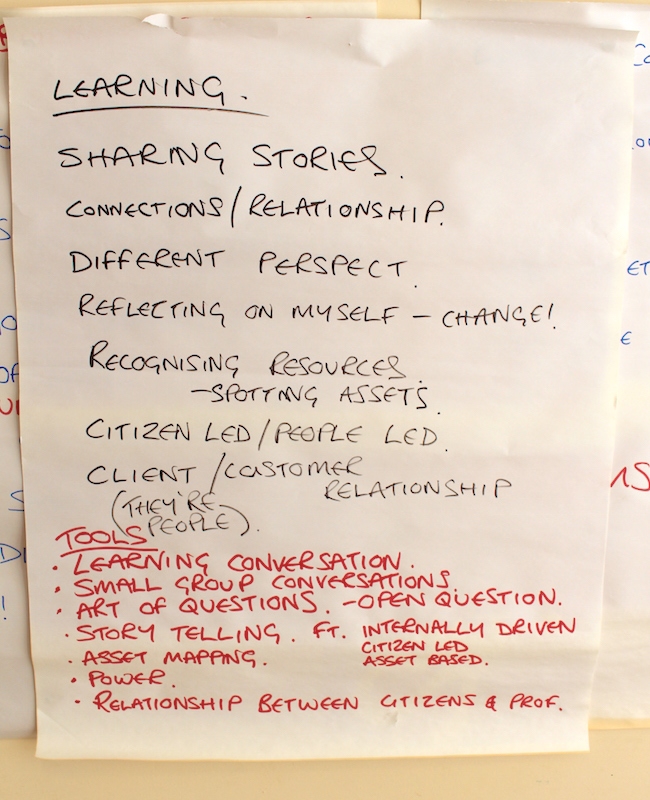 LEARNING.
SHARING STORIES.
CONNECTIONS/RELATIONSHIP.
DIFFERENT PERSPECT.
REFLECTING ON MYSELF – CHANGE!
RECOGNISING RESOURCES.
-SPOTTING ASSETS.
CITIZEN LED/PEOPLE LED.
CLIENT /CUSTOMER
RELATIONSHIP
(THEY'RE
PEOPLE).
TOOLS
• LEARNING CONVERSATION.
• SMALL GROUP CONVERSATIONS
• ART OF QUESTIONS. -OPEN QUESTION.
• STORY TELLING. FT. INTERNALLY DRIVEN
CITIZEN LED
• ASSET MAPPING. ASSET BASED.
• POWER.
• RELATIONSHIP BETWEEN CITIZENS & PROF.